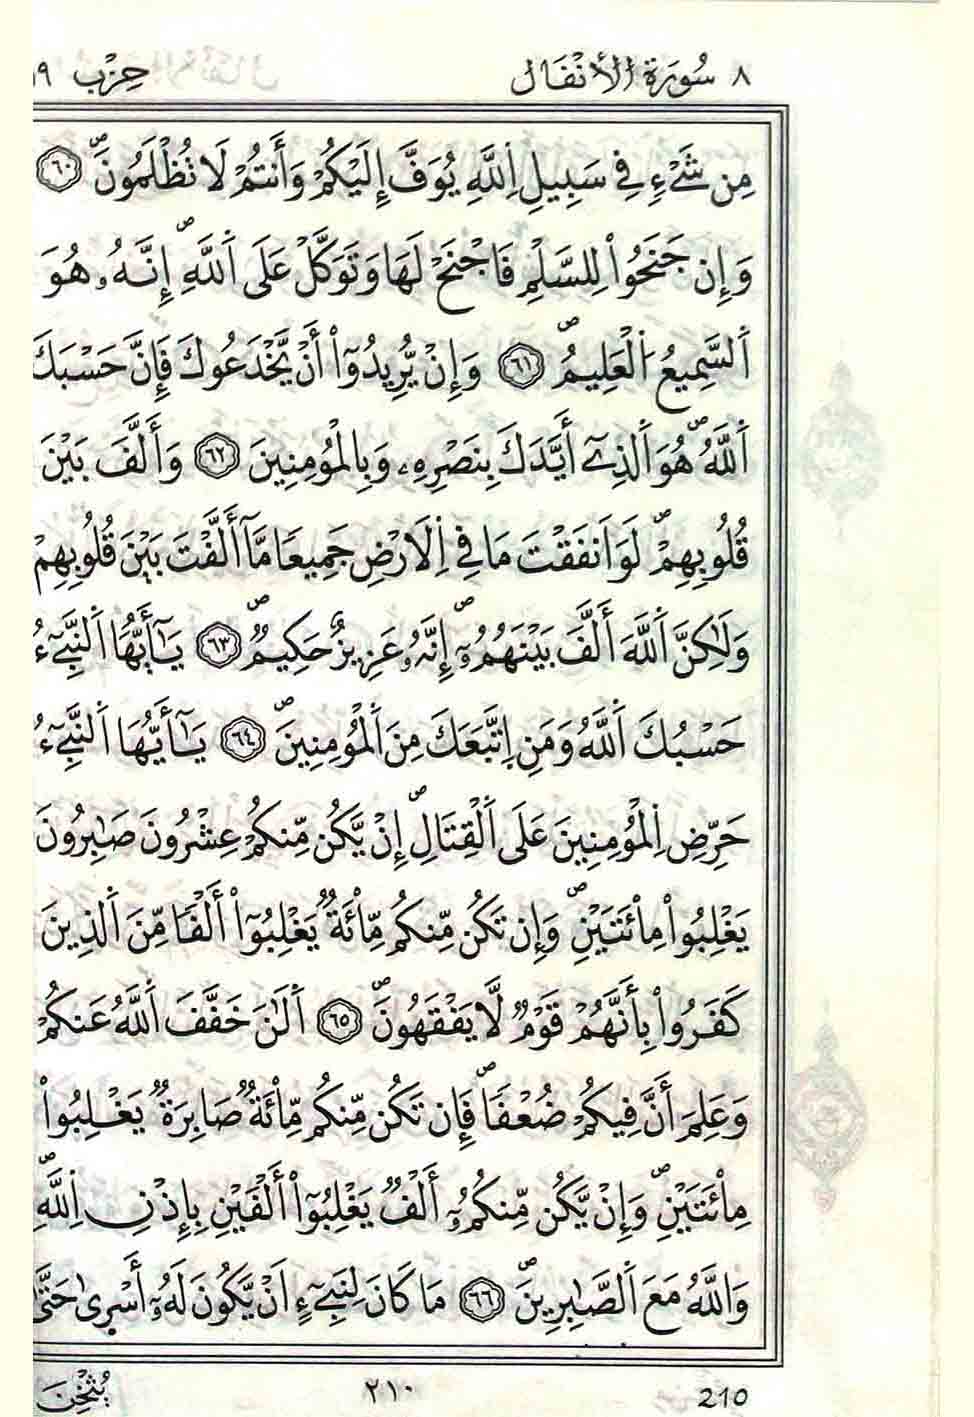 ٨ سُورَةُ الْأَنْفَال حِزْب ١٩
مِن شَےْءٖ فِے سَبِيلِ اِ۬للَّهِ يُوَفَّ إِلَيْكُمْ وَأَنتُمْ لَا تُظْلَمُونَۖ ٦٠
وَإِن جَنَحُواْ لِلسَّلْمِ فَاجْنَحْ لَهَا وَتَوَكَّلْ عَلَي اَ۬للَّهِۖ إِنَّهُۥ هُوَ
اَ۬لسَّمِيعُ اُ۬لْعَلِيمُۖ ٦١ وَإِنْ يُّرِيدُوٓاْ أَنْ يَّخْدَعُوكَ فَإِنَّ حَسْبَكَ
اَ۬للَّهُۖ هُوَ اَ۬لذِےٓ أَيَّدَكَ بِنَصْرِهِۦ وَبِالْمُومِنِينَ ٦٢ وَأَلَّفَ بَيْنَ
قُلُوبِهِمْۖ لَوَ اَنفَقْتَ مَا فِے اِ۬لَارْضِ جَمِيعاٗ مَّآ أَلَّفْتَ بَيْنَ قُلُوبِهِمْ
وَلَٰكِنَّ اَ۬للَّهَ أَلَّفَ بَيْنَهُمُۥٓۖ إِنَّهُۥ عَزِيزٌ حَكِيمٞۖ ٦٣ يَٰٓأَيُّهَا اَ۬لنَّبِےٓءُ
حَسْبُكَ اَ۬للَّهُ وَمَنِ اِ۪تَّبَعَكَ مِنَ اَ۬لْمُومِنِينَۖ ٦٤ يَٰٓأَيُّهَا اَ۬لنَّبِےٓءُ
حَرِّضِ اِ۬لْمُومِنِينَ عَلَي اَ۬لْقِتَالِۖ إِنْ يَّكُن مِّنكُمْ عِشْرُونَ صَٰبِرُونَ
يَغْلِبُواْ مِاْئَتَيْنِۖ وَإِن تَكُن مِّنكُم مِّاْئَةٞ يَغْلِبُوٓاْ أَلْفاٗ مِّنَ اَ۬لذِينَ
كَفَرُواْ بِأَنَّهُمْ قَوْمٞ لَّا يَفْقَهُونَۖ ٦٥ اَ۬لَٰنَ خَفَّفَ اَ۬للَّهُ عَنكُمْ
وَعَلِمَ أَنَّ فِيكُمْ ضُعْفاٗۖ فَإِن تَكُن مِّنكُم مِّاْئَةٞ صَابِرَةٞ يَغْلِبُواْ
مِاْئَتَيْنِۖ وَإِنْ يَّكُن مِّنكُمُۥٓ أَلْفٞ يَغْلِبُوٓاْ أَلْفَيْنِ بِإِذْنِ اِ۬للَّهِۖ
وَاللَّهُ مَعَ اَ۬لصَّٰبِرِينَۖ ٦٦ مَا كَانَ لِنَبِےٓءٍ اَنْ يَّكُونَ لَهُۥٓ أَسْر۪يٰ حَتَّيٰ
210 ٢١٠ يُثْخِنَ